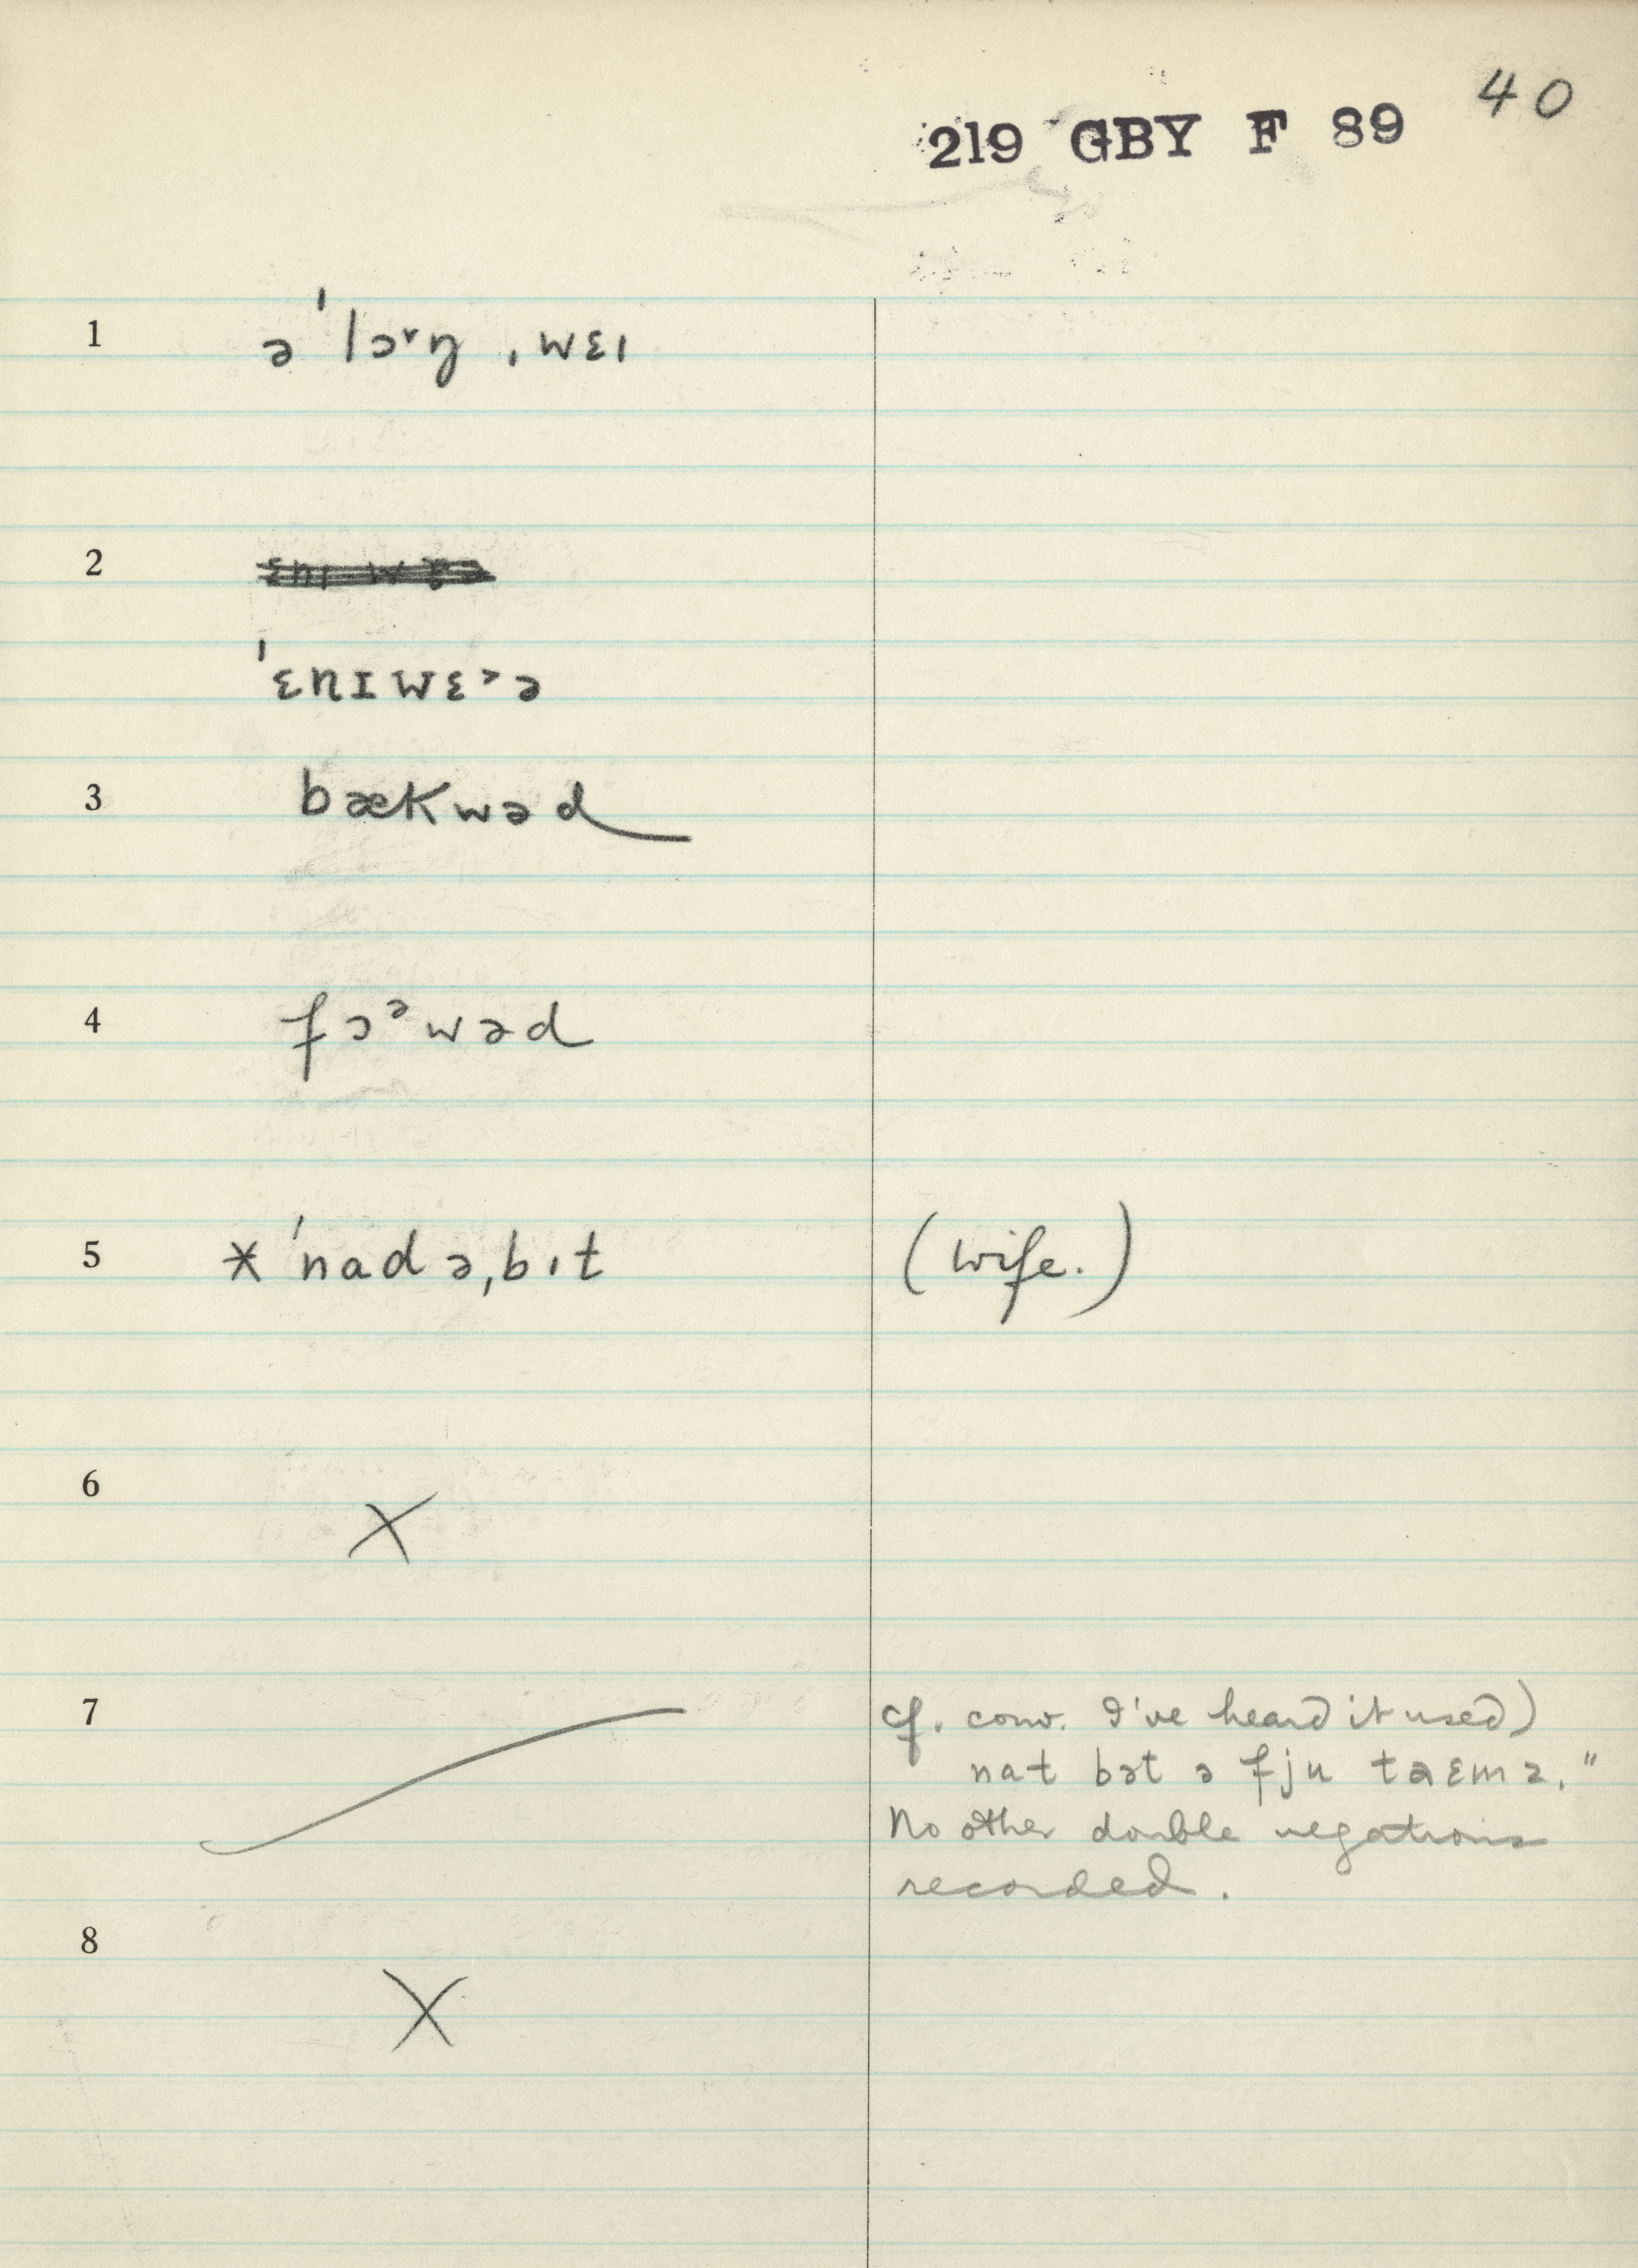 40
219 GBY F 89
1 əˈlɔ˅ŋ ˌwɛɪ
2
ˈɛnɪwɛ˃ə
3 bækwəd
4 fɔᵊwəd
5 * ˈnadəˌbɪt (wife.)
6 X
7 cf. conv. I've heard it used)
nat bət ə fju taɛmz."
No other double negations
recorded.
8 X